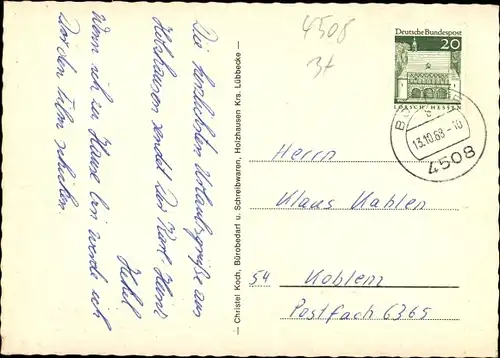 Die herzlichsten Urlaubsgrüße aus
Holzhausen sendet Dir Karl-Heinz
Hekel
Wenn ich zu Hause bin werde ich
Dir den Film schicken.
— Christel Koch, Bürobedarf u. Schreibwaren, Holzhausen Krs. Lübbecke —
4508
Deutsche Bundespost
20
LORSCH/HESSEN
13.10.68-10
4508
Herrn
Klaus Kahlen
54 Koblenz
Postfach 6365